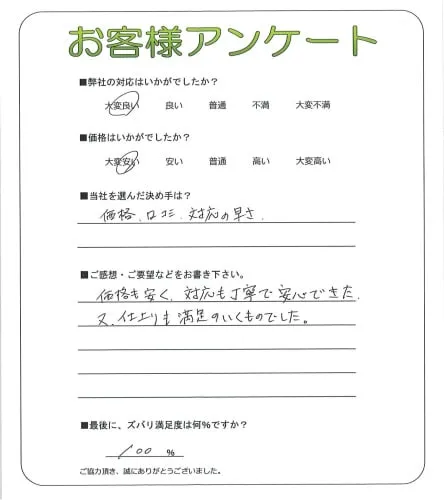 お客様アンケート
■弊社の対応はいかがでしたか?
大変良い 良い 普通 不満 大変不満
■価格はいかがでしたか?
大変安い 安い 普通 高い 大変高い
■当社を選んだ決め手は?
価格、口コミ、対応の早さ
■ご感想・ご要望などをお書き下さい。
価格も安く、対応も丁寧で安心できた
又、仕上りも満足のいくものでした。
■最後に、ズバリ満足度は何%ですか?
100 %
ご協力頂き、誠にありがとうございました。